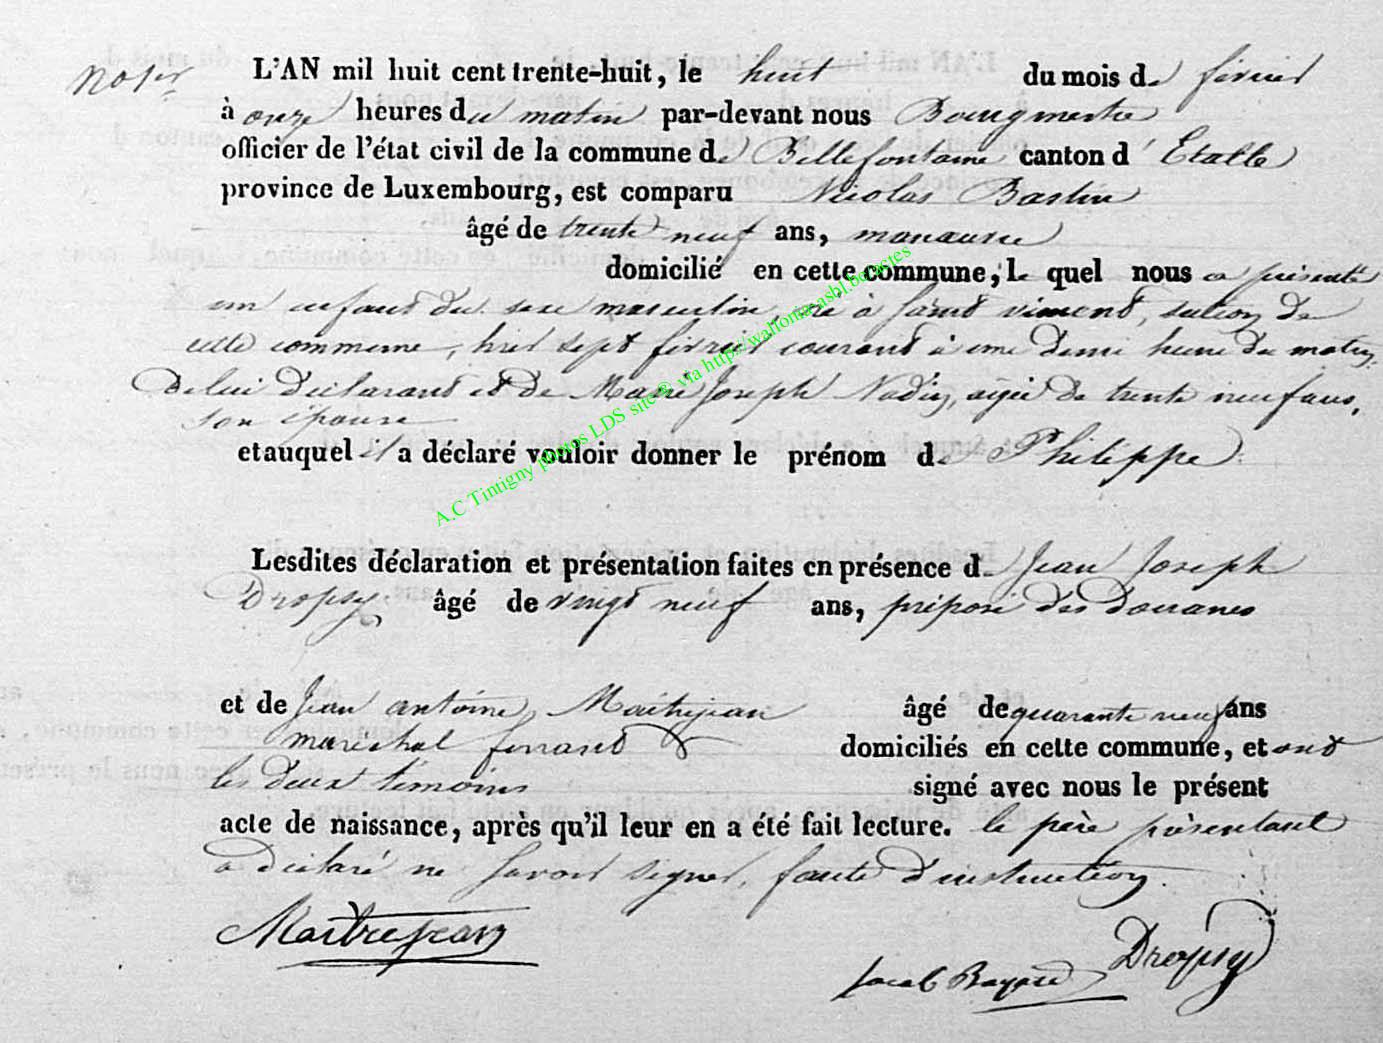 L'AN mil huit cent trente-huit, le huit du mois de février
à onze heures du matin par-devant nous Bourgmestre
officier de l'état civil de la commune de Bellefontaine canton d'Etalle
province de Luxembourg, est comparu Nicolas Bastin
âgé de trente neuf ans, manœuvre
domicilié en cette commune, le quel nous a présenté
un enfant du sexe masculin, né à Saint vincent, section de
cette commune, hier sept février courant à une demi heure du matin,
de lui déclarant et de Marie Joseph Nadin, agée de trente neuf ans,
son épouse
et auquel il a déclaré vouloir donner le prénom de Philippe
A.C Tintigny photos LDS site © via http:/wallonia-asbl.be/actes
Lesdites déclaration et présentation faites en présence de Jean Joseph
Dropsy âgé de vingt neuf ans, préposé des douanes
et de Jean antoine Maitrejean âgé de quarante neuf ans
maréchal ferrant domiciliés en cette commune, et ont
les deux témoins signé avec nous le présent
acte de naissance, après qu'il leur en a été fait lecture. le père présentant
a déclaré ne savoir signer, faute d'instruction.
Maitrejean
Dropsy
Jacob Bayard